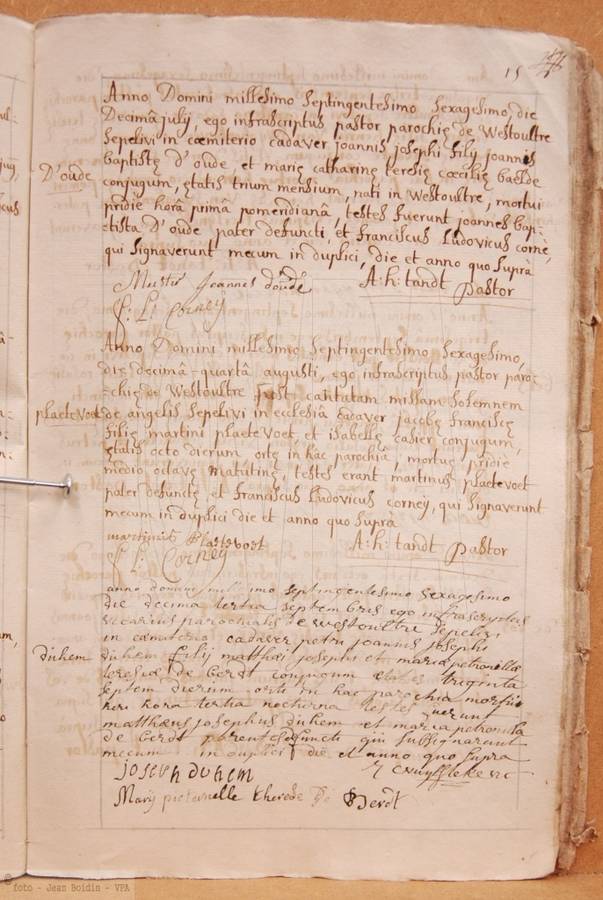 15
Anno Domini millesimo septingentesimo sexagesimo, die
Decimâ julij, ego infrascriptus pastor parochię de Westoultre
sepelivi in cœmiterio cadaver joannis josephi filij joannis
D'oude
baptistę D'oude et marię catharinę teresię cœcilię baelde
conjugum, ętatis trium mensium, nati in Westoultre, mortui
pridie horâ primâ pomeridianâ, testes fuerunt joannes bap-
tista D'oude pater defuncti, et franciscus Ludovicus corneÿ,
qui signaverunt mecum in duplici, die et anno quo suprà
Joannes doude
A: h: tandt pastor
f. L. Corneÿ
Anno Domini millesimo septingentesimo sexagesimo,
die decimâ-quartâ augusti, ego infrascriptus pastor paro-
chię de Westoultre post cantatam missam solemnem
plaetevoet
de angelis sepelivi in ecclesiâ cadaver jacobę franciscę
filię martini plaetevoet, et isabellę casier conjugum,
ętatis octo dierum ortę in hac parochiâ, mortuę pridie
medio octavę matutinę, testes erant martinus plaetevoet
pater defunctę, et franciscus Ludovicus corneÿ, qui signaverunt
mecum in duplici die et anno quo suprà
martinus Plaetevoet
A: h: tandt pastor
f. L. Corneÿ
anno domini millesimo septingentesimo sexagesimo
die decima tertia septembris ego infrascriptus
vicarius parochialis de westoultre sepelivi
in cæmiterio cadaver petri joannis josephi
duhem
duhem filij matthæi josephi et mariæ petronillæ
teresiæ de berdt conjugum ætatis triginta
septem dierum orti in hac parochia mortui
heri hora tertia nocturna testes fuerunt
matthæus josephus duhem et maria petronilla
de berdt parentes defuncti qui subsignarunt
mecum in duplici die et anno quo supra
joseph duhem
Marij pieternelle therese De Berdt
© foto - Jean Boidin - VPA